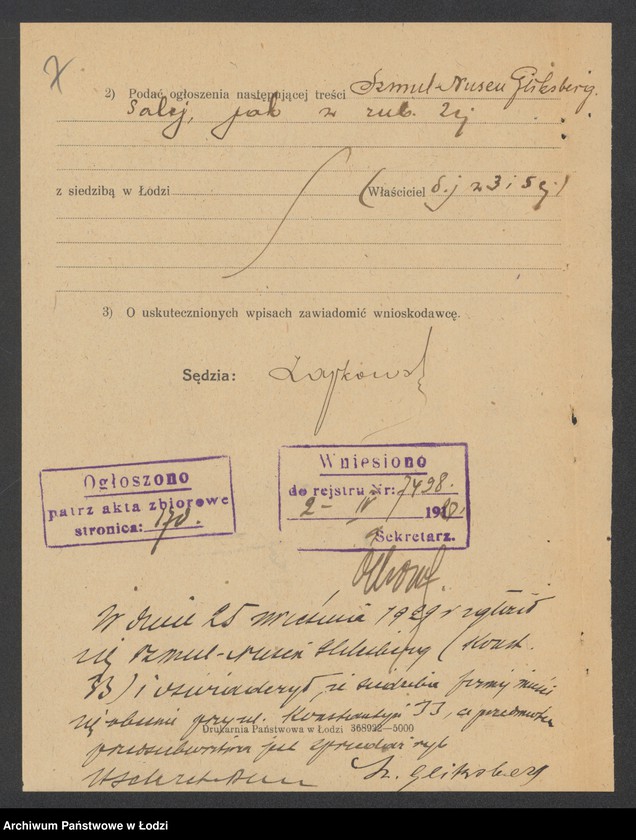 2) Podać ogłoszenia następującej treści Szmul-Nusen Gliksberg.
dalej, jak w rub. 2ej
z siedzibą w Łodzi (Właściciel d. j w 3 i 5 ej)
3) O uskutecznionych wpisach zawiadomić wnioskodawcę.
Sędzia:
Ogłoszono
patrz akta zbiorowe
stronica: 170.
Wniesiono
do rejestru Nr: 7498.
2 - IV 19
Sekretarz.
W dniu 25 września 1929 r zgłosił
się Szmul-Nusen Gliksberg (Konst.
33) i oświadczył, że siedziba firmy mieści
się obecnie przy ul. Konstantyn 33, a przedmiotem
Drukarnia Państwowa w Łodzi 368922—5000
przedsiębiorstwa jest sprzedaż ryb
Sz. Gliksberg